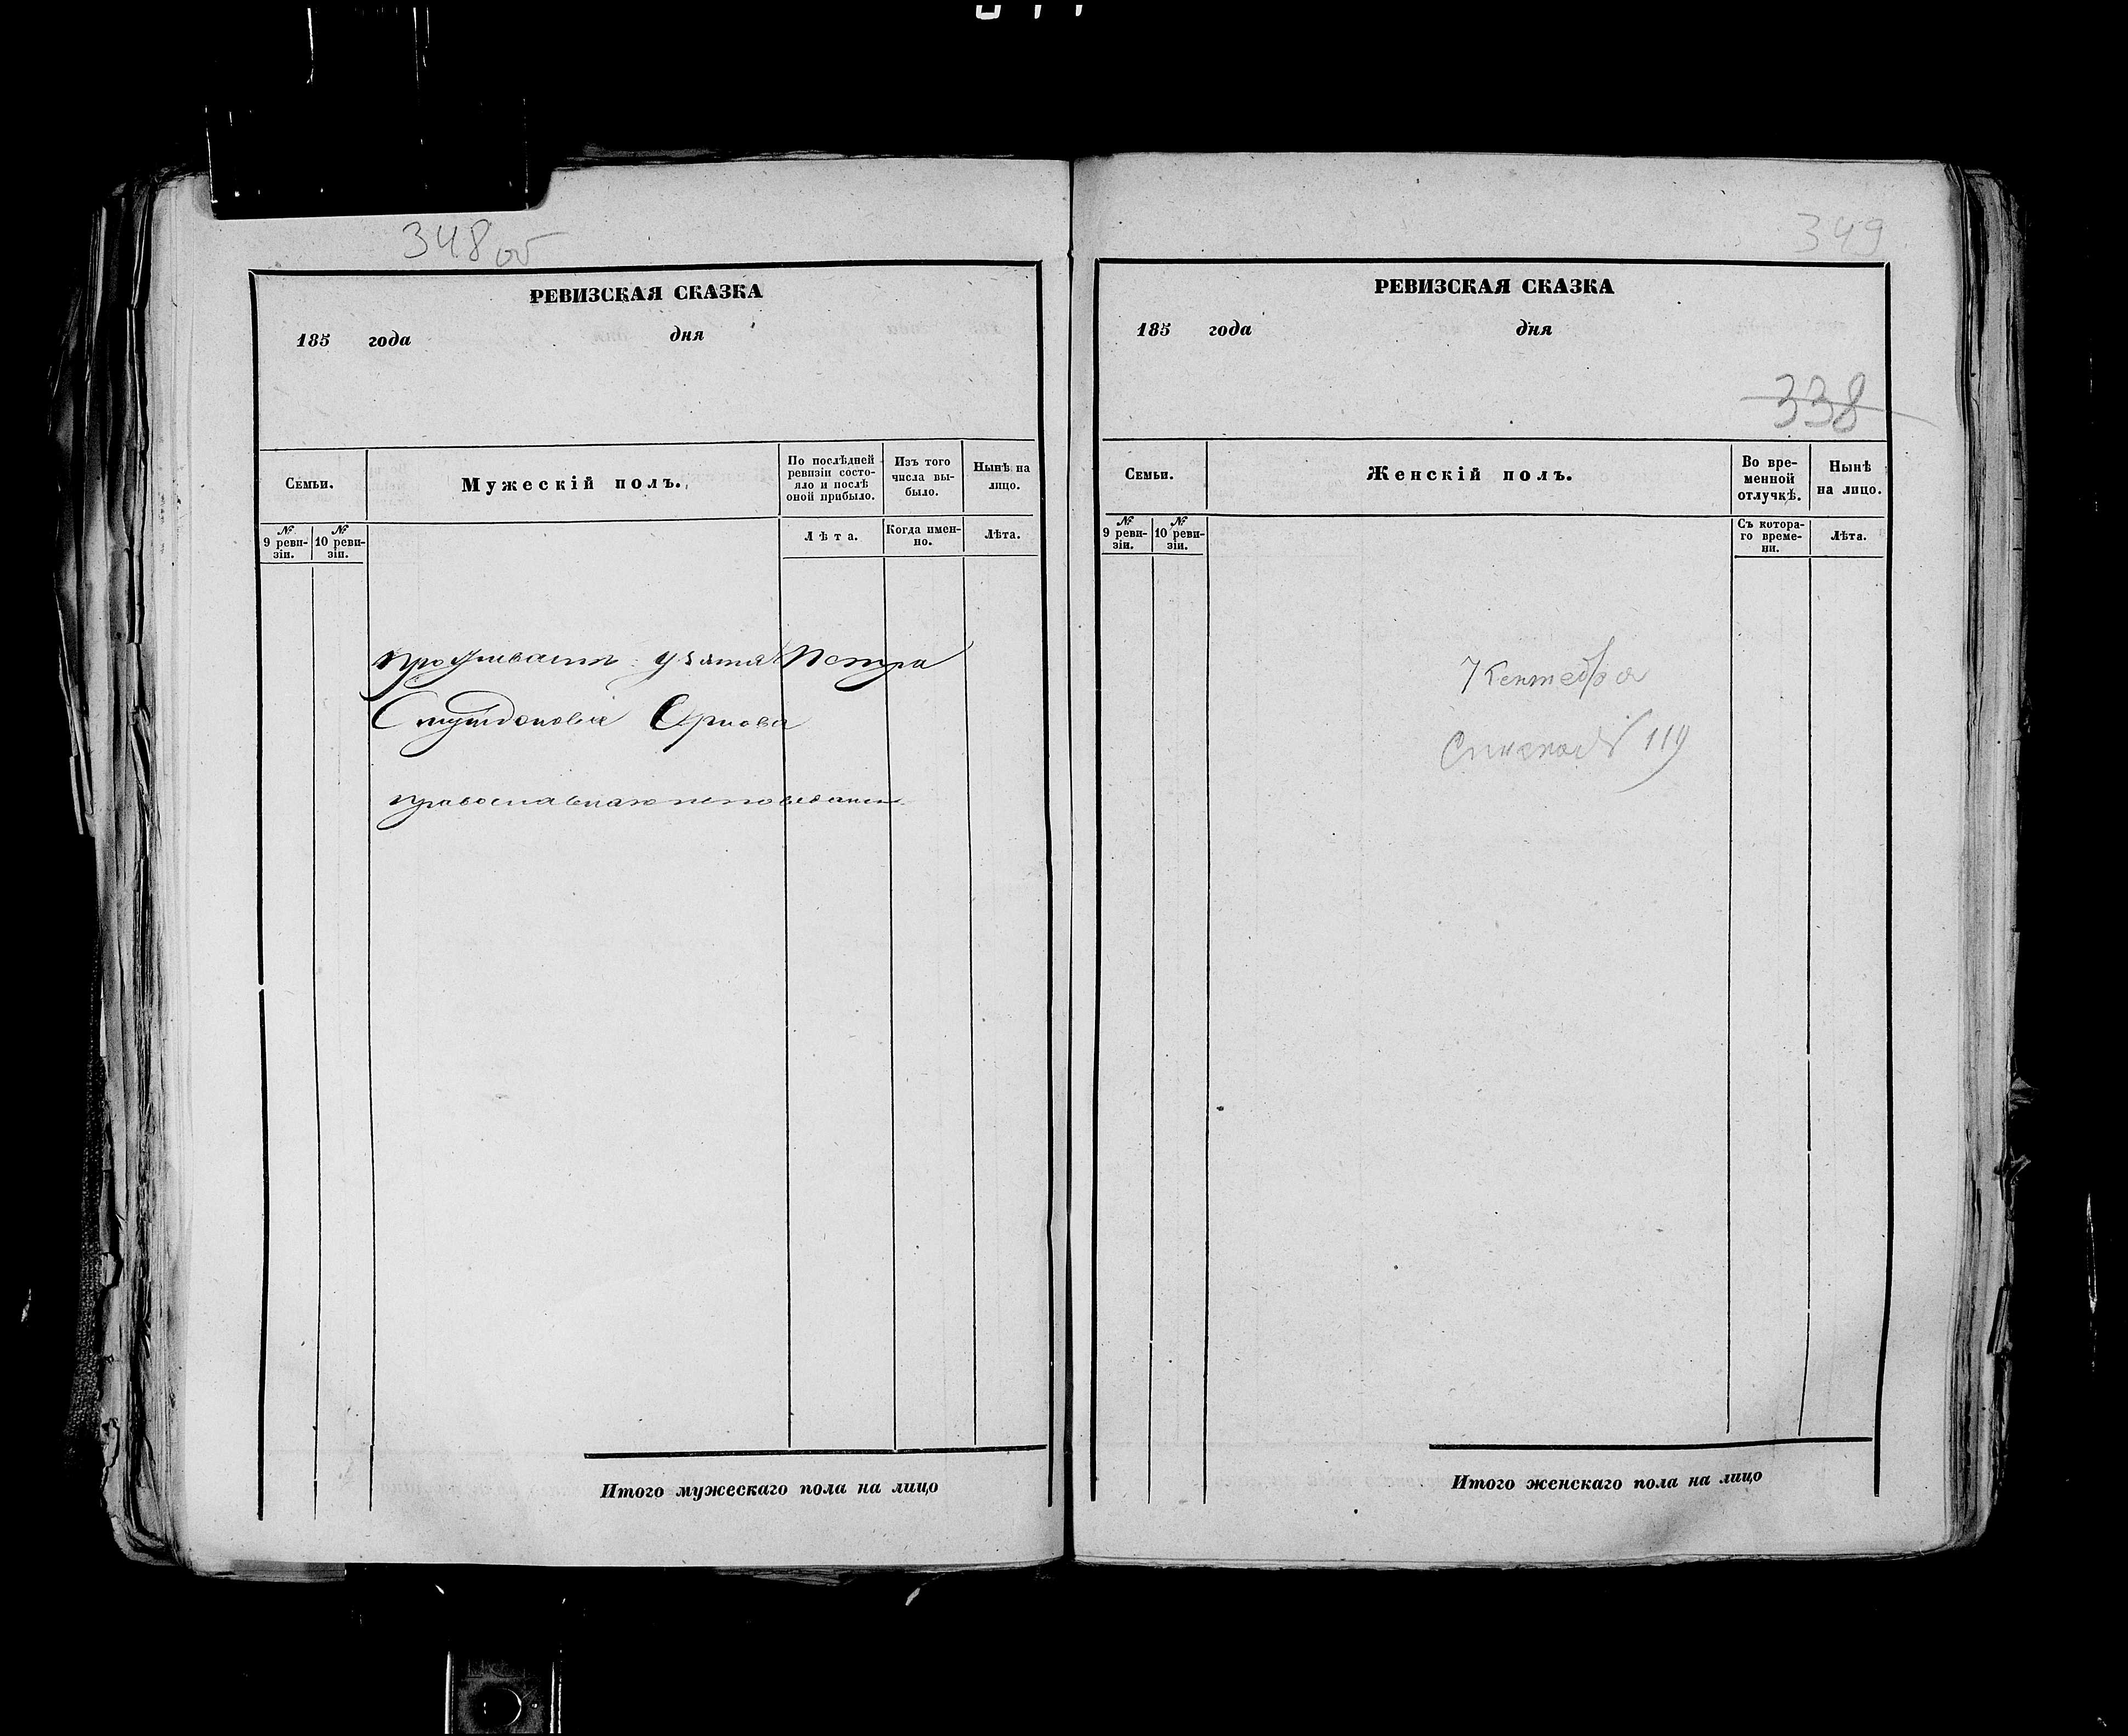 348 об
РЕВИЗСКАЯ СКАЗКА
185 года дня
Семьи.
Мужескій полъ.
По послѣдней ревизіи состо-
яло и послѣ оной прибыло.
Изъ того числа вы-
было.
Нынѣ на лицо.
№ 9 реви-
зіи.
№ 10 реви-
зіи.
Лѣта.
Когда имен-
но.
Лѣта.
проживаетъ у зятя Петра
православнаго исповеданія
Итого мужескаго пола на лицо
349
РЕВИЗСКАЯ СКАЗКА
185 года дня
338
Семьи.
Женскій полъ.
Во вре-
менной
отлучкѣ.
Нынѣ
на лицо.
№ 9 реви-
зіи.
№ 10 реви-
зіи.
Съ котора-
го време-
ни.
Лѣта.
119
Итого женскаго пола на лицо